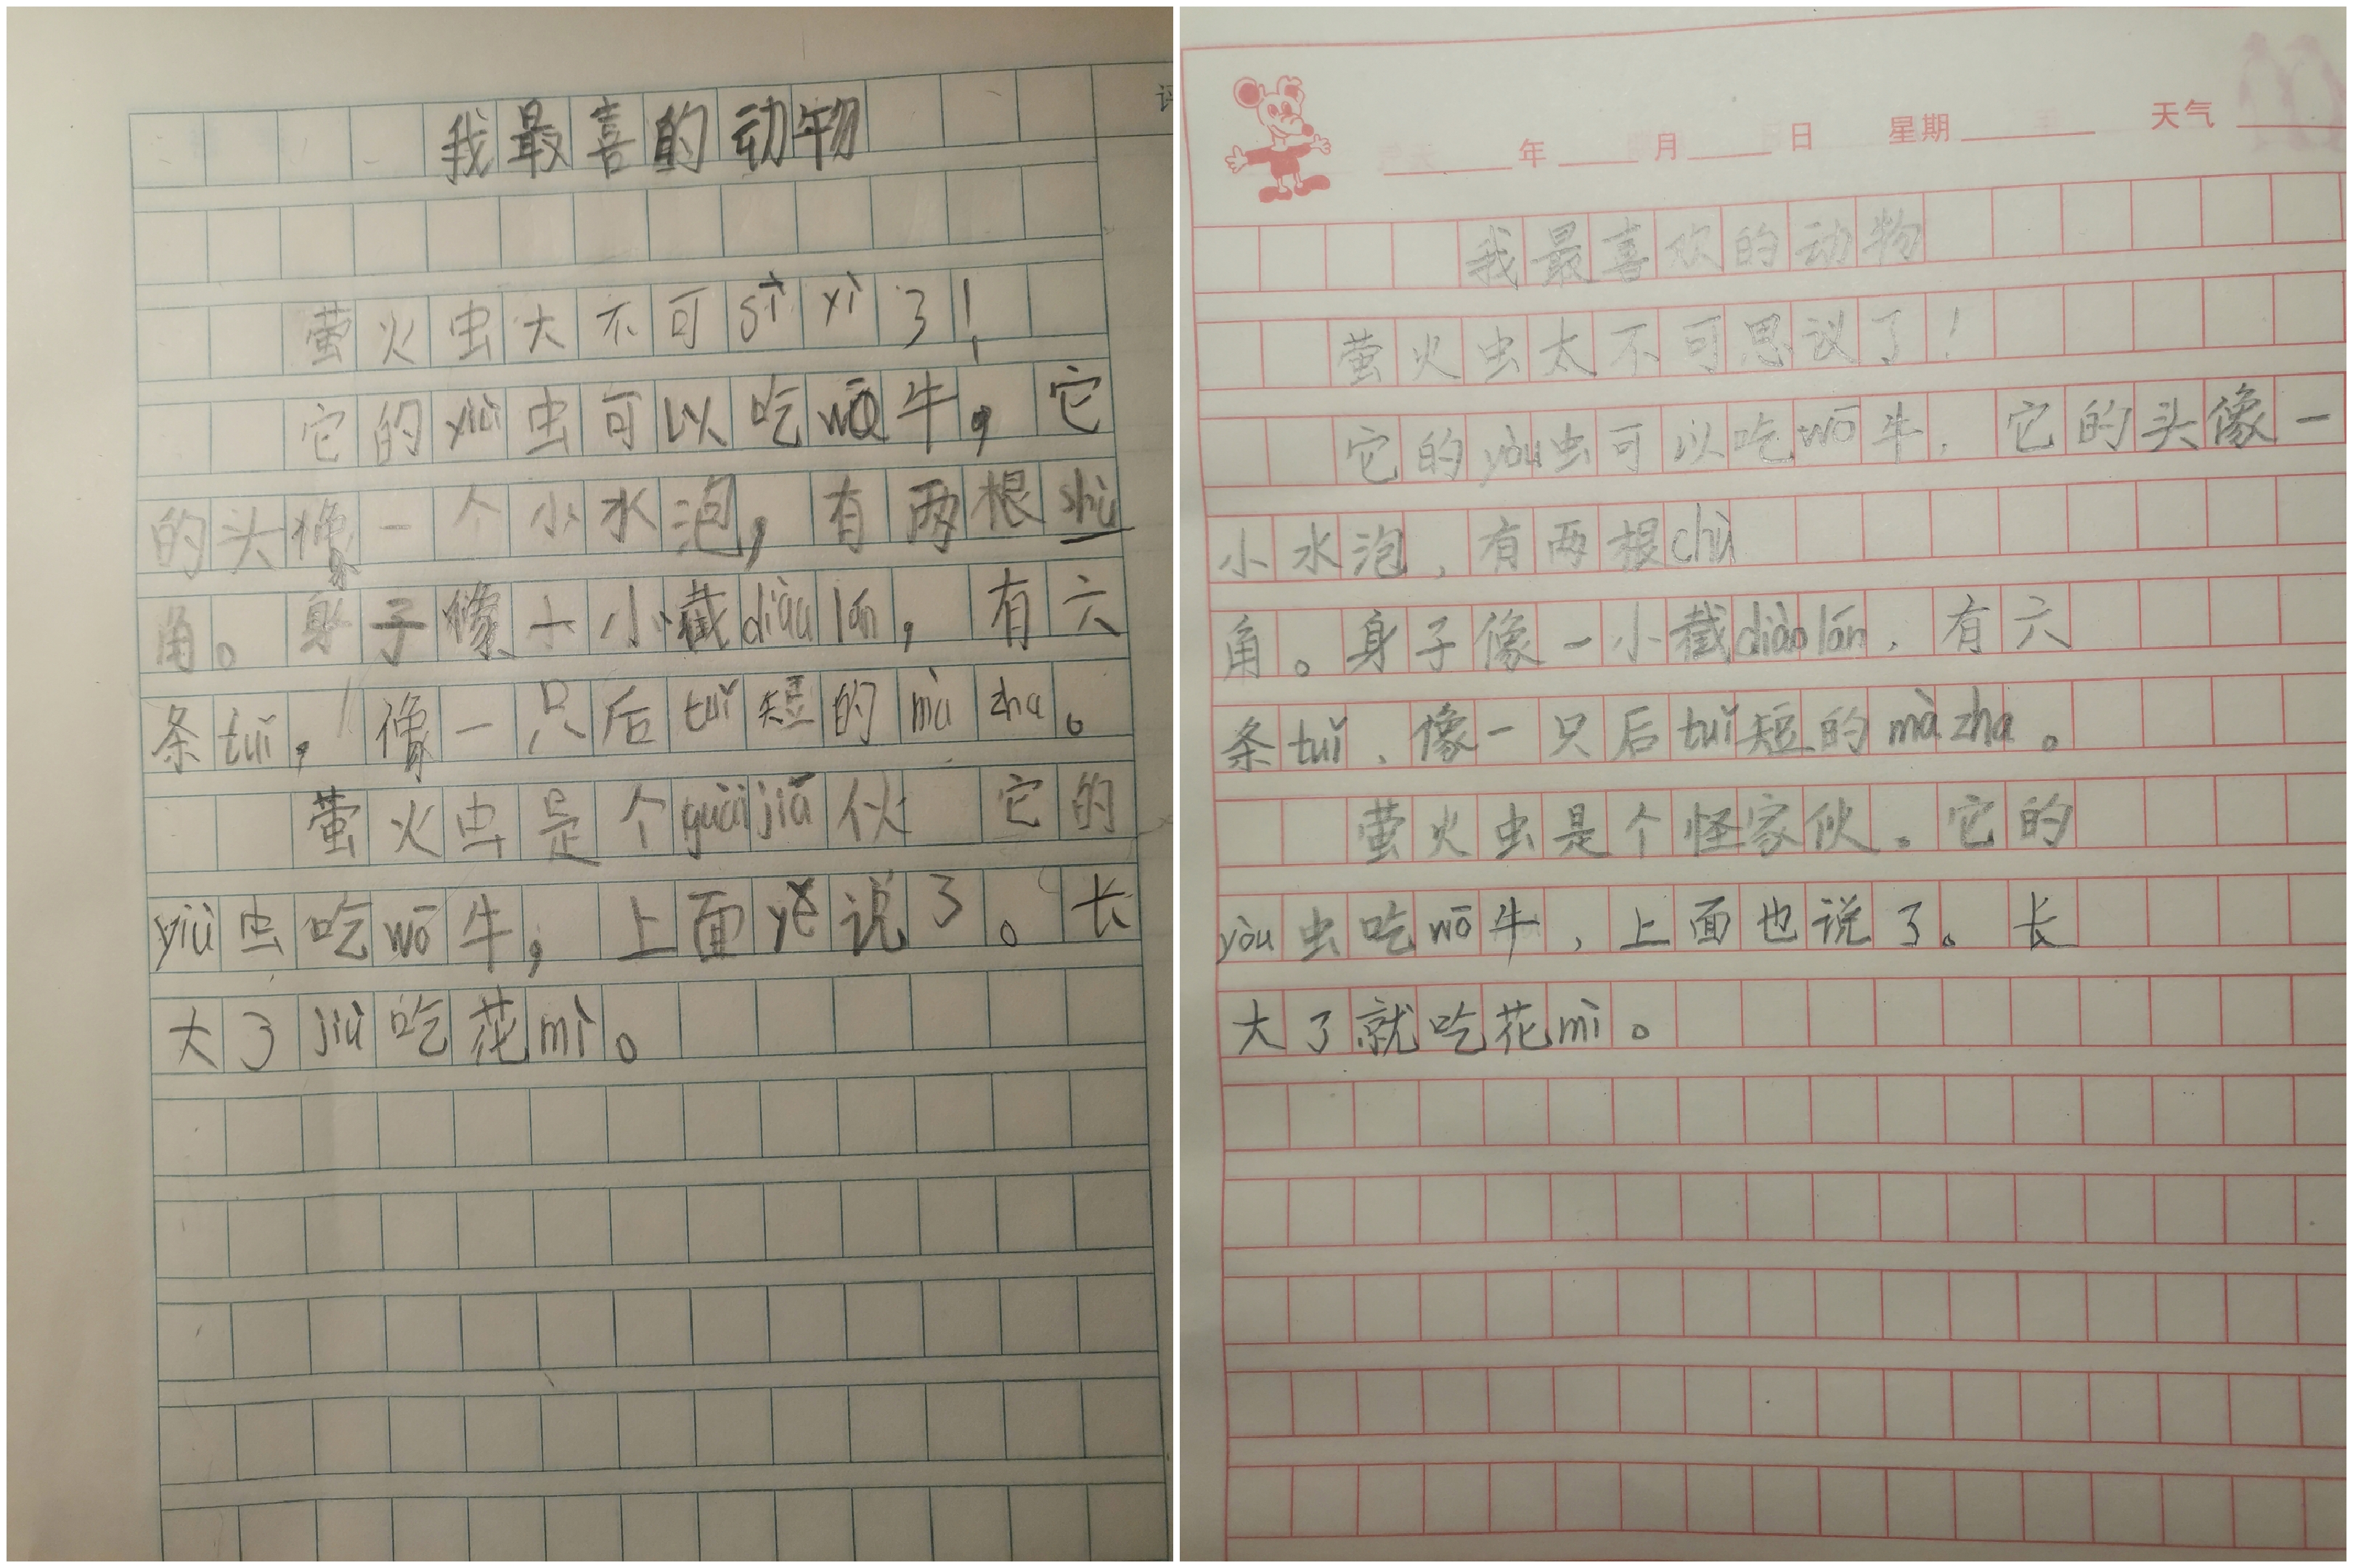 评
我最喜的动物
萤火虫大不可sī yì了！
它的yiù虫可以吃wō牛，它
的头像一个小水泡，有两根shù
角。身子像一小截diàu lán，有六
条tuǐ，像一只后tuǐ短的mà zha。
萤火虫是个guài jiā伙 它的
yiù虫吃wō牛，上面yě说了。长
大了jiù吃花mì。
年 月 日 星期 天气
我最喜欢的动物
萤火虫太不可思议了！
它的yòu虫可以吃wō牛，它的头像一
小水泡，有两根chù
角。身子像一小截diào lán，有六
条tuǐ，像一只后tuǐ短的mà zha。
萤火虫是个怪家伙。它的
yòu虫吃wō牛，上面也说了。长
大了就吃花mì。